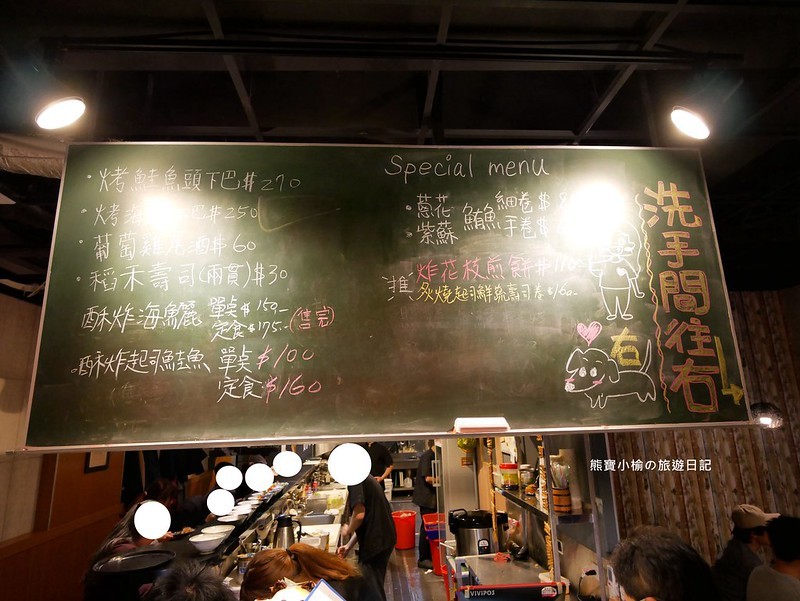 烤鮭魚頭下巴$270
烤 巴$250
葡萄雞尾酒$60
稻禾壽司(兩貫)$30
酥炸海鱺 單点$150-
定食$175- (售完)
酥炸起司鮭魚 單点$100
定食$160
Special menu
蔥花 鮪魚 細卷$
紫蘇 手卷$
推 炸花枝煎餅$
炙燒起司鮮蔬壽司卷$160-
洗手間往右
右
熊寶小榆の旅遊日記
VIVIPOS